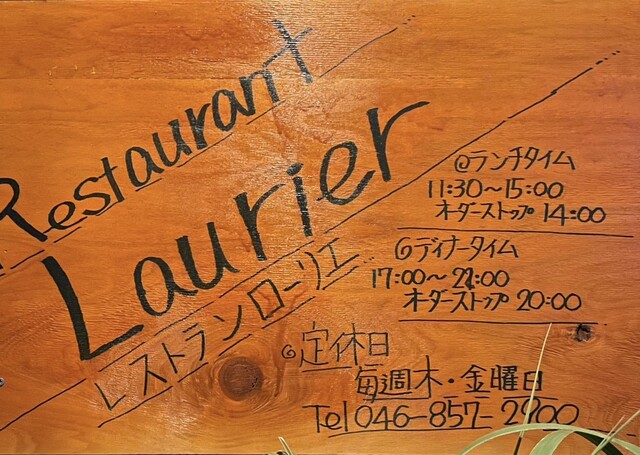 Restaurant
Laurier
レストランローリエ
◎ランチタイム
11:30～15:00
オーダーストップ 14:00
◎ディナータイム
17:00～21:00
オーダーストップ 20:00
◎定休日
毎週木・金曜日
Tel 046-857-2900